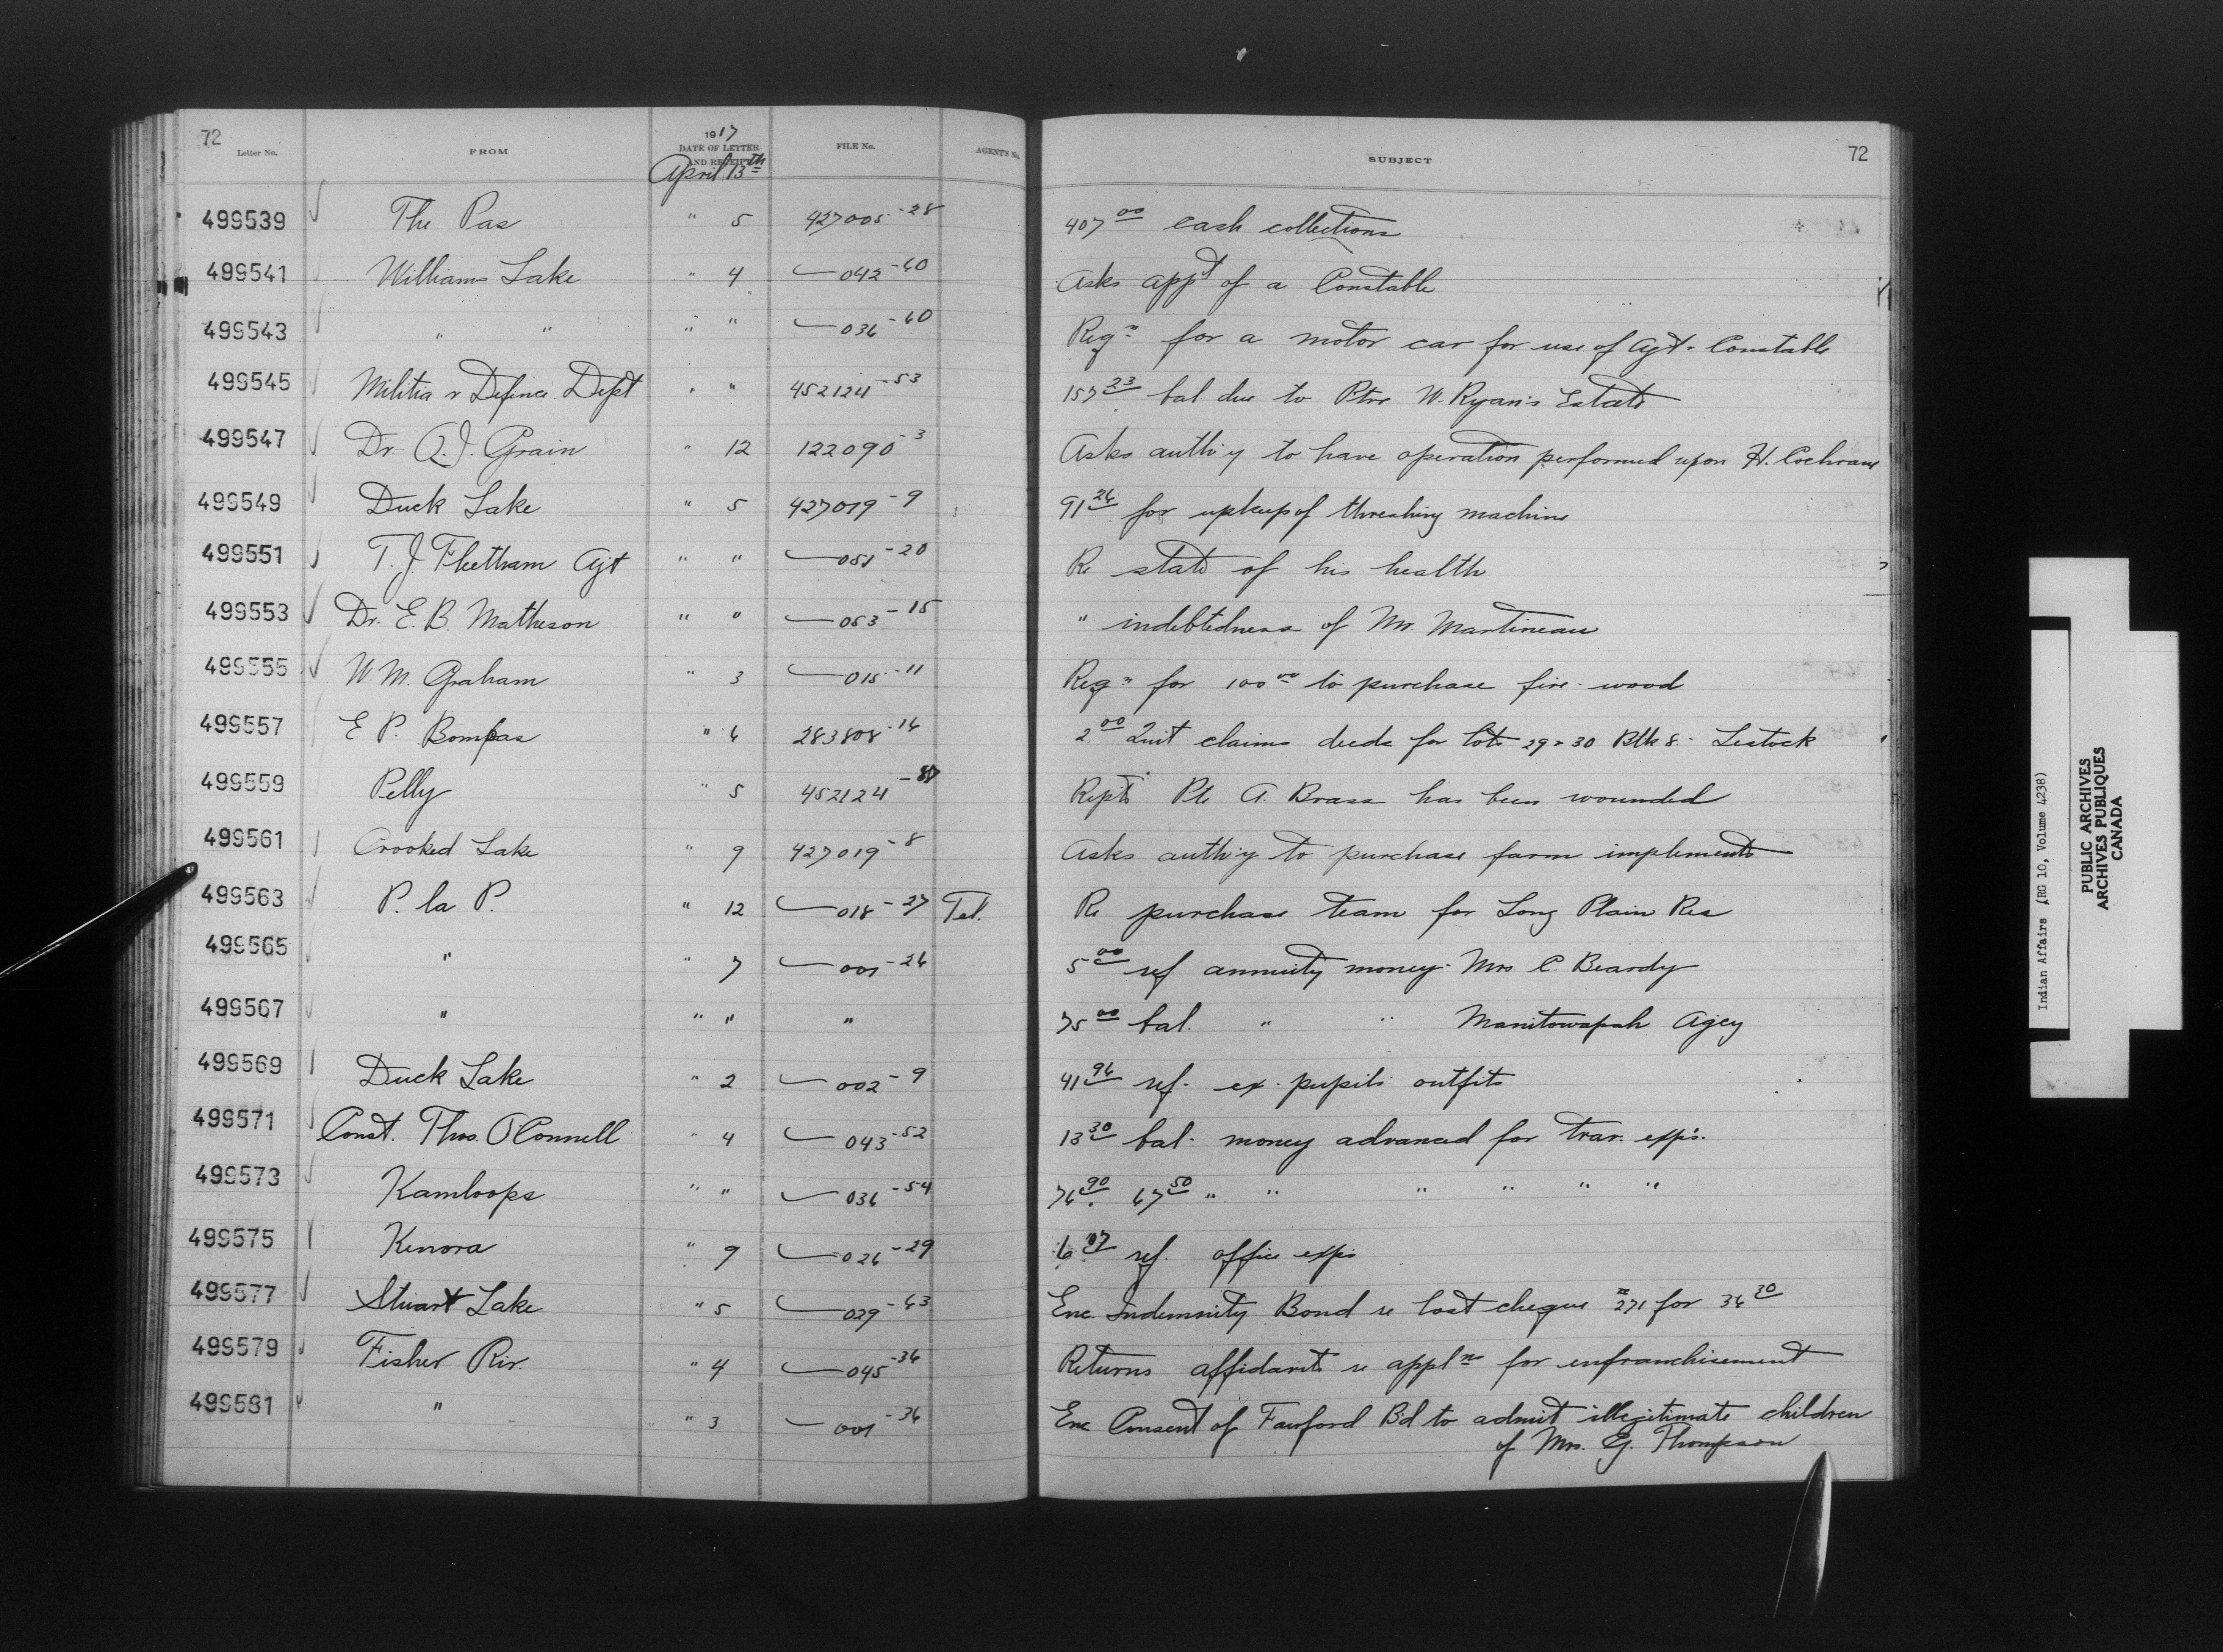 72
Letter No. FROM 1917 DATE OF LETTER AND RECEIPT FILE No. AGENT'S No. SUBJECT 72
April 13th
499539 The Pas " 5 427005-28 407 00 cash collections
499541 Williams Lake " 4 042-60 Asks app't of a Constable
499543 " " " " 036-60 Reqn for a motor car for use of Agt & Constable
499545 Militia & Defence Dept " " 452124-53 157 23 bal due to Ptve W. Ryan's Estate
499547 Dr. O.J. Grain " 12 122090-3 Asks auth'y to have operation performed upon H. Cochrane
499549 Duck Lake " 5 427019-9 91 26 for upkeep of threshing machine
499551 T.J. Fleetham Agt " " 051-20 Re state of his health
499553 Dr. E.B. Matheson " " 053-15 " indebtedness of Mr. Martineau
499555 W.M. Graham " 3 015-11 Reqn for 100 00 to purchase fire-wood
499557 E.P. Bompas " 6 283808-16 2 00 Quit claims deeds for lots 29 & 30 Blk 8 - Lestock
499559 Pelly " 5 452124- Repts Pte A. Brass has been wounded
499561 Crooked Lake " 9 427019-8 Asks auth'y to purchase farm implements
499563 P. la P. " 12 018-27 Tel. Re purchase team for Long Plain Res
499565 " " 7 001-26 5 00 ref annuity money - Mrs. C. Beardy
499567 " " " " 75 00 bal. " " Manitowapah Agcy
499569 Duck Lake " 2 002-9 41 96 ref. ex. pupils outfits
499571 Const. Thos. O'Connell " 4 043-52 13 30 bal. money advanced for trav. exps.
499573 Kamloops " " 036-54 76 90 67 50 " " " " " "
499575 Kenora " 9 026-29 6 07 ref. office exps
499577 Stuart Lake " 5 029-63 Enc. Indemnity Bond re lost cheque # 271 for 36 30
499579 Fisher Riv. " 4 045-36 Returns affidavits re appln for enfranchisement
499581 " " 3 001-36 Enc Consent of Fairford Bd to admit illegitimate children
of Mrs. G. Thompson
Indian Affairs (RG 10, Volume 4238)
PUBLIC ARCHIVES
ARCHIVES PUBLIQUES
CANADA